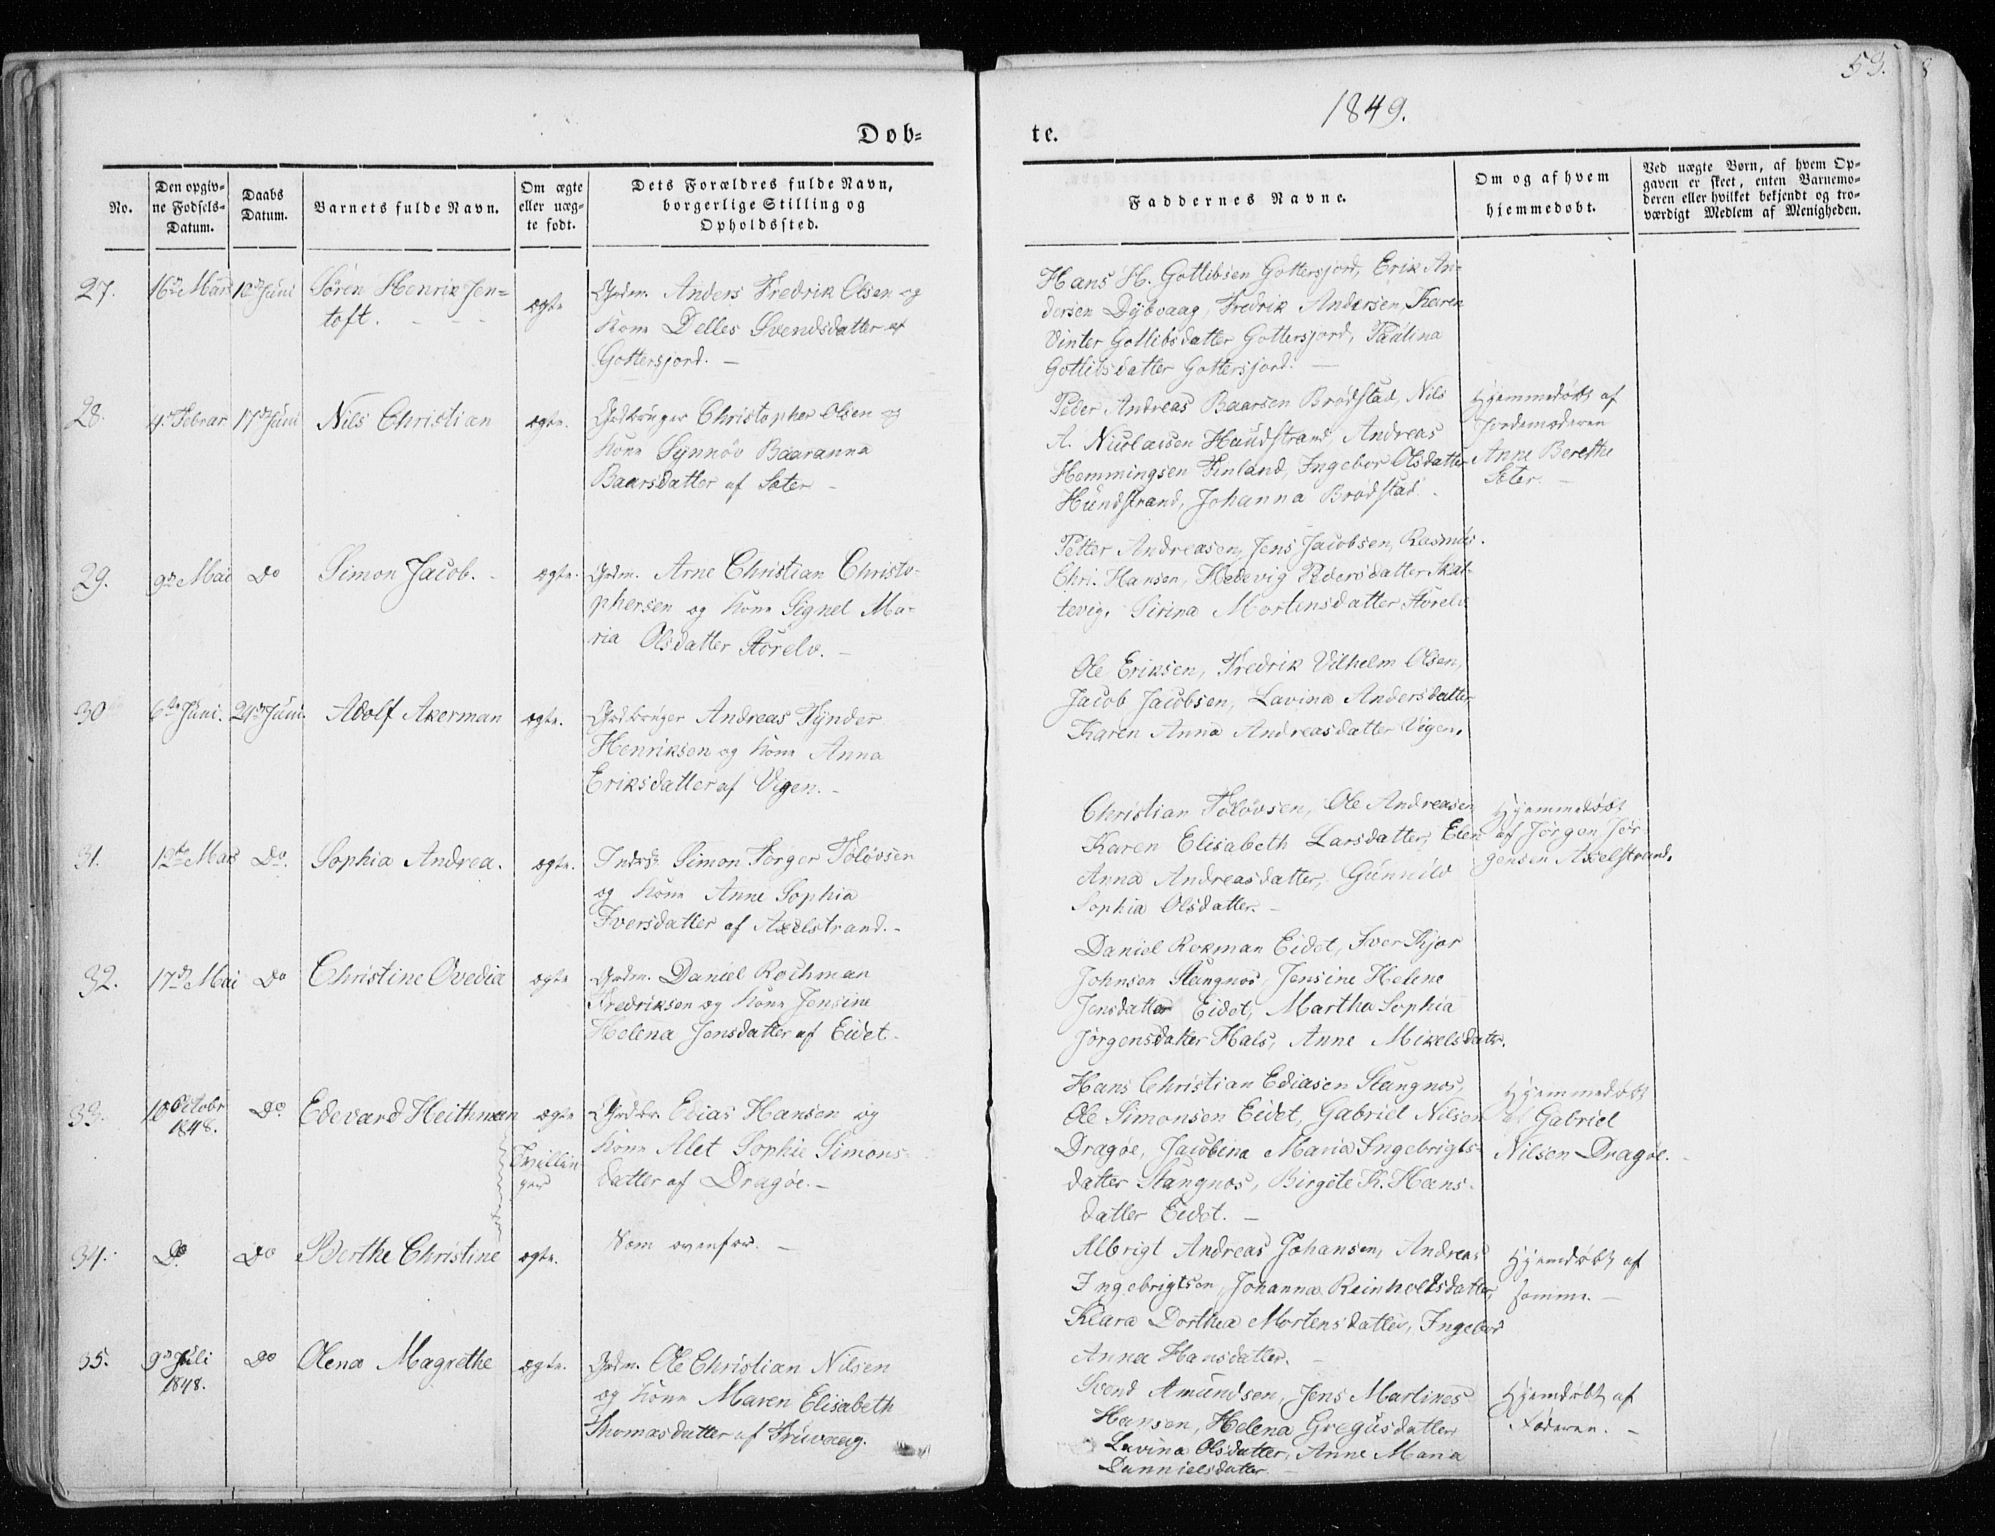 53.
8
1849.
Dob=
te.
No.
Den opgiv=
ne Fodsels=
Datum.
Daabs
Datum.
Barnets fulde Navn.
Om ægte
eller uæg=
te fodt.
Dets Forældres fulde Navn,
borgerlige Stilling og
Opholdssted.
Faddernes Navne.
Om og af hvem
hjemmedobt.
Ved uægte Born, af hvem Op=
gaven er skeet, enten Barnemo=
deren eller hvilket bekjendt og tro=
værdigt Medlem af Menigheden.
27.
16de Mars
Søren Henrik Jen=
toft.
ægte
Grdm. Anders Fredrik Olsen og
Kone Delles Svendsdatter af
Gottersjord. —
Hans H. Gotlibsen Gottersjord, Erik An=
dersen Dybvaag, Fredrik Andersen, Karen
Vinter Gotlibsdatter Gottersjord, Paulina
Gotlibsdatter Gottersjord. —
28.
4de Februar
17de Juni
Nils Christian
ægte.
Grdbruger Christopher Olsen og
Kone Synnøv Baaranna
Baarsdatter af Sæter —
Peder Andreas Baarsen Brødstad, Nils
A. Nicolaisen Hundstrand, Andreas
Hemmingsen Finland, Ingebor Olsdatter
Hundstrand, Johanna Brødstad.
Hjemmedøbt af
Jordemoderen
Anne Berethe
Sæter. —
29.
9de Mai
Do
Simon Jacob. -
ægte.
Grdm. Arne Christian Christo-
phersen og Kone Signel Ma-
ria Olsdatter Storelv. —
Petter Andreasen, Jens Jacobsen, Rasmus
Chri. Hansen, Hedevig Pedersdatter Skat-
tevig, Sirina Mortensdatter Storelv
30
6te Juni.
24de Juni
Adolf Akerman
ægte.
Grdbruger Andreas Fynder
Henriksen og Kone Anna
Eriksdatter af Vigen. —
Ole Eriksen, Fredrik Vilhelm Olsen,
Jacob Jacobsen, Lavina Andersdatter
Karen Anna Andreasdatter Vigen.
31.
12te Mars
Do.
Sophia Andrea.
ægte.
Indrst. Simon Torger Toløvsen
og Kone Anne Sophia
Iversdatter af Axelstrand. -
Christian Toløvsen, Ole Andreasen
Karen Elisabeth Larsdatter, Elen
Anna Andreasdatter, Gunnild
Sophia Olsdatter. —
Hjemmedøbt
af Jørgen Jør
gensen Axelstrand.
32.
17de Mai
Do
Christine Ovedia
ægte
Grdm. Daniel Rochman
Fredriksen og Kone Jensine
Helena Jensdatter af Eidet -
Daniel Rokman Eidet, Iver Kjar
Johnsen Stangnes, Jensine Helene
Jensdatter Eidet, Martha Sophia
Jørgensdatter Hals, Anne Mikelsdatr.
33.
10 Octobr
1848.
Do
Edevard Heithman
ægte
Tvillin
ger
Grdbr. Edias Hansen og
Kone Alet Sophie Simons-
datter af Dragøe. —
Hans Christian Ediasen Stangnes,
Ole Simonsen Eidet, Gabriel Nilsen
Dragøe, Jacobina Maria Ingebrigts-
datter Stangnes, Birgite K. Hans-
datter Eidet. —
Hjemmedøbt
af Gabriel
Nilsen Dragøe. -
34.
Do.
Do
Berthe Christine
ægte.
Som ovenfor. —
Albrigt Andreas Johansen, Andreas
Ingebrigtsen, Johanna Reinholdsdatter
Klara Dorthea Mortensdatter, Ingebor
Anna Hansdatter. —
Hjemdøbt af
samme. —
35.
9de Juli
1848.
Do
Olena Magrethe
ægte.
Grdm. Ole Christian Nilsen
og Kone Maren Elisabeth
Thomasdatter af Truvaag.
Svend Amundsen, Jens Martines
Hansen, Helena Gregusdatter
Lavina Olsdatter, Anne Maria
Dannielsdatter. —
Hjemdøbt af
Faderen. —